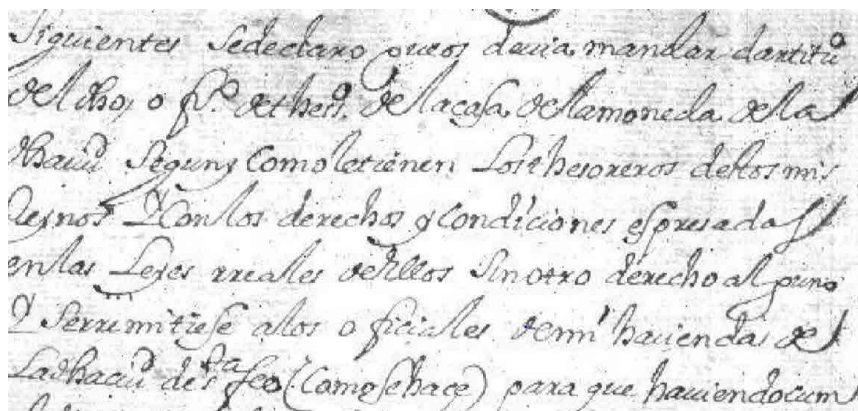 siguientes se declaro que os devia mandar dar titu.º
del dho, offi.º de thes.º de la casa de la moneda de la
dha ciu.d segun y como le tienen los thesoreros destos mis
Reynos Y con los derechos y condiciones espresadas
en las Leyes rreales de ellos sin otro derecho alguno
Y se rremitiese a los officiales de mi hacienda de
La dha ciu.d de s.ta fee (como se hace) para que haviendo cum